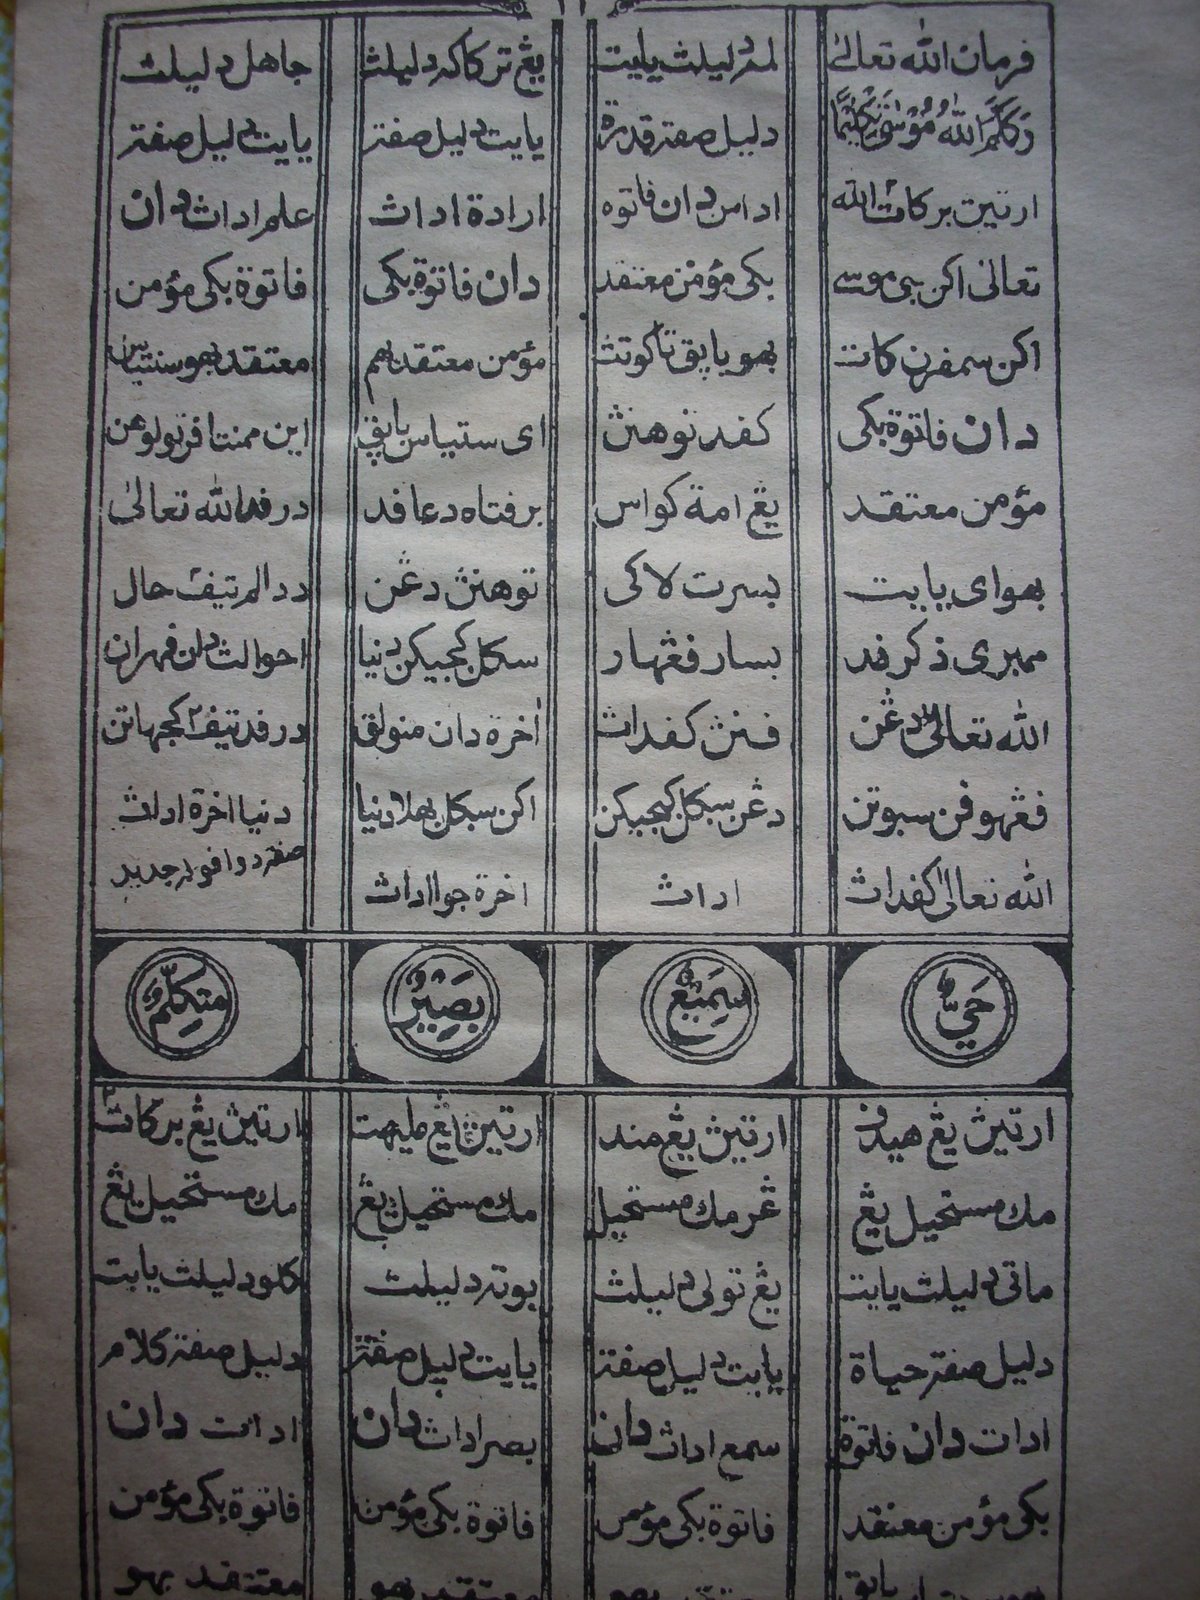 ١١
فرمان الله تعالى
وَكَلَّمَ اللهُ مُوْسَى تَكْلِيْمًا
ارتيڽ بركات٢ الله
تعالى اكن نبي موسى
اكن سمفرن كات
دان فاتوة بكي
مؤمن معتقد
بهواي يايت
ممبري ذكر فد
الله تعالى دڠن
فڠهوفن سبوتن
الله تعالى كفداڽ
لمه دليلڽ يايت
دليل صفة قدرة
اداس دان فاتوه
بكي مؤمن معتقد
بهو يايق تاكوتڽ
كفد توهنڽ
يڠ امة كواس
بسرت لاكي
بسار فڠهار
فنڽ كفداڽ
دڠن سكل كبجيكن
اداڽ
يڠ تركاكه دليلڽ
يايت دليل صفة
ارادة اداڽ
دان فاتوة بكي
مؤمن معتقد بهو
اي سنتياس بايق
برفتاه دعا فد
توهنڽ دڠن
سكل كبجيكن دنيا
أخرة دان منولق
اكن سكل بهلا دنيا
اخرة جوا اداڽ
جاهل دليلڽ
يايت دليل صفة
علم اداڽ دان
فاتوة بكي مؤمن
معتقد بهو سنتياس
اين ممنتا فرتولوڠن
درفد الله تعالى
ددالم تيف٢ حال
احوالڽ دان فمهران
درفد تيف٢ كجهاتن
دنيا اخرة اداڽ
حَيٌّ
سَمِيْعٌ
بَصِيْرٌ
مُتَكَلِّمٌ
ارتيڽ يڠ هيدف
مك مستحيل يڠ
ماتي دليلڽ يايت
دليل صفة حياة
اداڽ دان فاتوة
بكي مؤمن معتقد
ارتيڽ يڠ مند
ڠر مك مستحيل
يڠ تولي دليلڽ
يايت دليل صفة
سمع اداڽ دان
فاتوة بكي مؤمن
ارتيڽ يڠ مليهت
مك مستحيل يڠ
بوته دليلڽ
يايت دليل صفة
بصر اداڽ دان
فاتوة بكي مؤمن
معتقد بهو
ارتيڽ يڠ بركات٢
مك مستحيل يڠ
كلو دليلڽ يايت
دليل صفة كلام
اداڽ دان
فاتوة بكي مؤمن
معتقد بهو